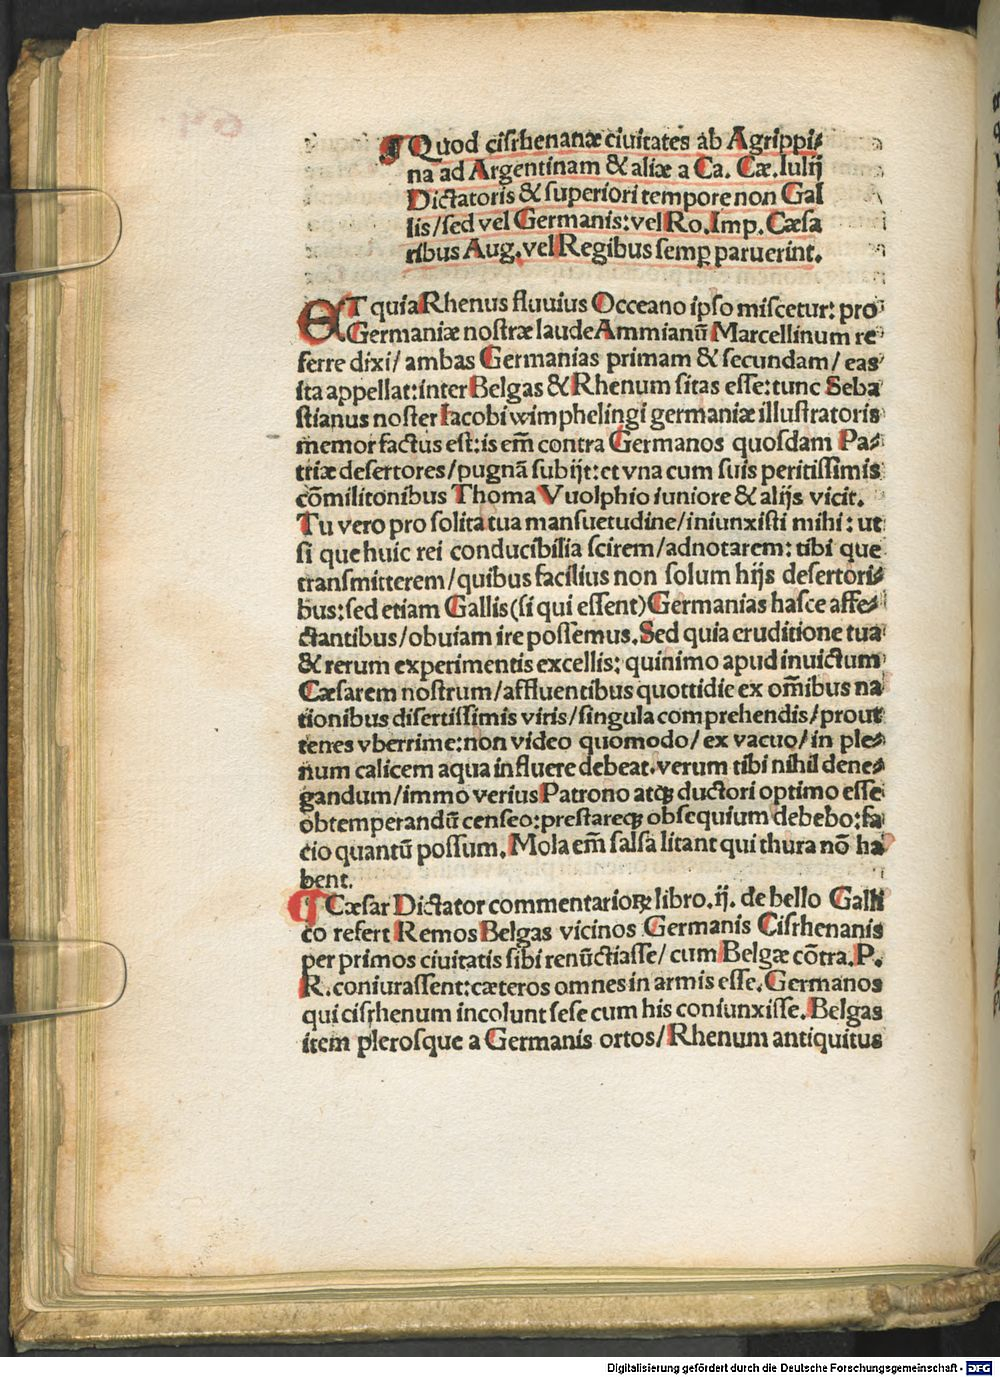 ¶ Quod cisrhenanæ ciuitates ab Agrippi⸗
na ad Argentinam & aliæ a Ca. Cæ. Iulij
Dictatoris & superiori tempore non Gal
lis/sed vel Germanis: vel Ro. Imp. Cæsa
ribus Aug. vel Regibus semꝑ paruerint.
ET quia Rhenus fluuius Occeano ipso miscetur: pro
Germaniæ nostræ laude Ammianū Marcellinum re
ferre dixi/ ambas Germanias primam & secundam/ eas
ita appellat: inter Belgas & Rhenum sitas esse: tunc Seba
stianus noster Iacobi wimphelingi germaniæ illustratoris
memor factus est: is em̄ contra Germanos quosdam Pa⸗
triæ desertores/ pugnā subijt: et vna cum suis peritissimis
cōmilitonibus Thoma Vuolphio iuniore & alijs vicit.
Tu vero pro solita tua mansuetudine/iniunxisti mihi: ut
si que huic rei conducibilia scirem/adnotarem: tibi que
transmitterem/quibus facilius non solum hijs desertori⸗
bus: sed etiam Gallis (si qui essent) Germanias hasce affe⸗
ctantibus/obuiam ire possemus. Sed quia eruditione tua
& rerum experimentis excellis: quinimo apud inuictum
Cæsarem nostrum/affluentibus quottidie ex om̄ibus na
tionibus disertissimis viris/singula comprehendis/prout
tenes vberrime: non video quomodo/ ex vacuo/ in ple⸗
num calicem aqua influere debeat. verum tibi nihil dene⸗
gandum/immo verius Patrono atqꝫ ductori optimo esse
obtemperandū censeo: prestareqꝫ obsequium debebo: fa
cio quantū possum. Mola em̄ salsa litant qui thura nō ha
bent.
¶ Cæsar Dictator commentarioꝝ libro. ij. de bello Galli
co refert Remos Belgas vicinos Germanis Cisrhenanis
per primos ciuitatis sibi renūctiasse/ cum Belgæ cōtra. P.
R. coniurassent: cæteros omnes in armis esse. Germanos
qui cisrhenum incolunt sese cum his coniunxisse. Belgas
item plerosque a Germanis ortos/ Rhenum antiquitus
Digitalisierung gefördert durch die Deutsche Forschungsgemeinschaft - DFG